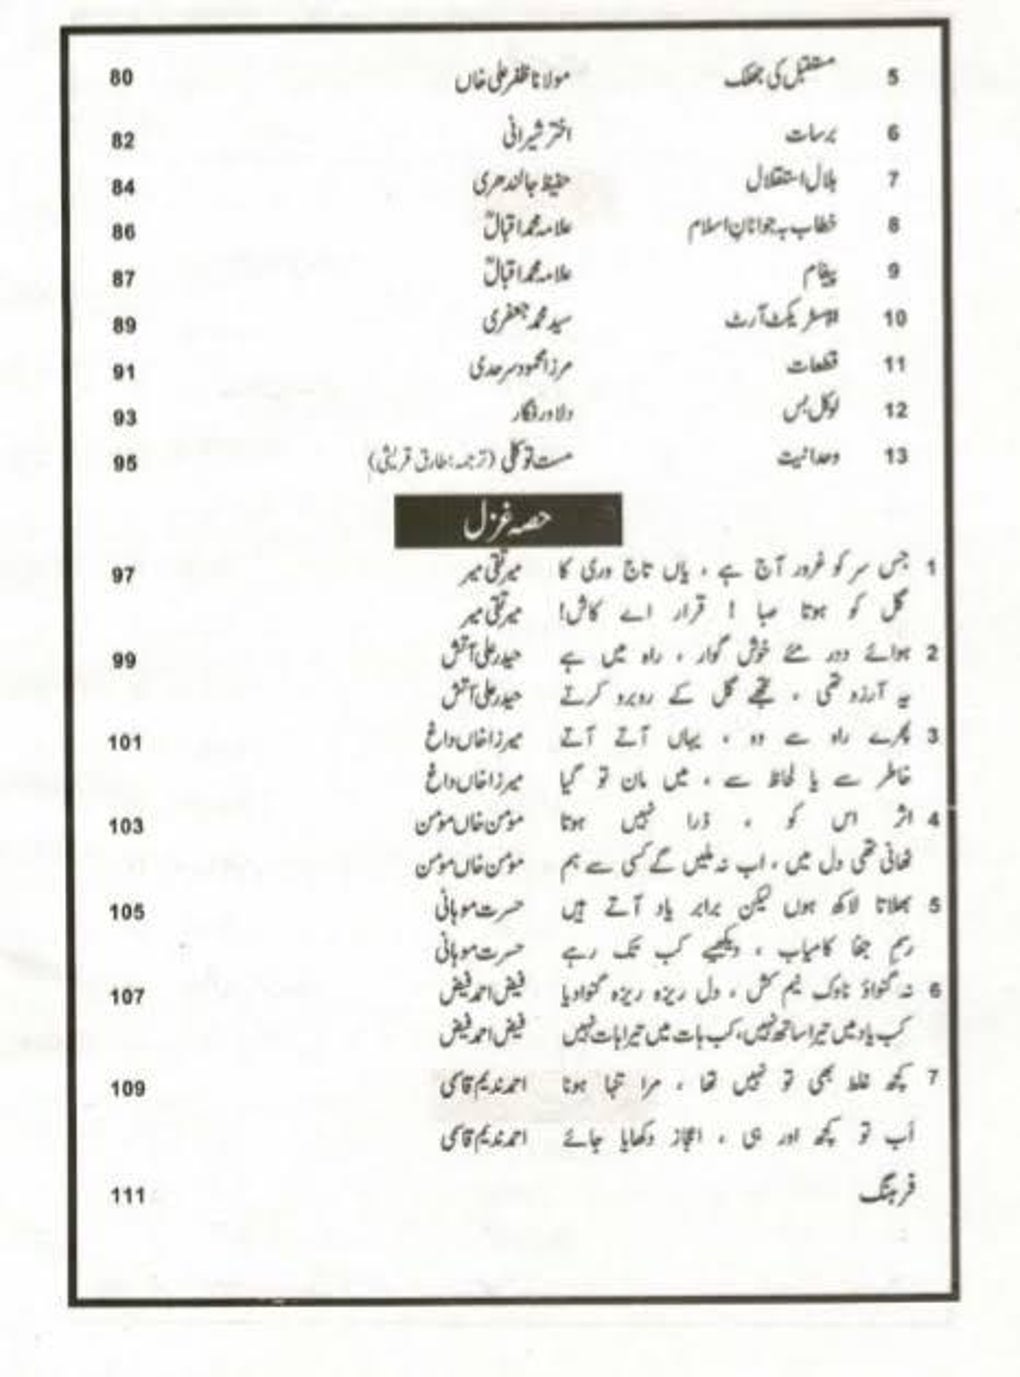 5 مستقبل کی جھلک مولانا ظفر علی خاں 80
6 برسات اختر شیرانی 82
7 ہلال استقلال حفیظ جالندھری 84
8 خطاب بہ جوانانِ اسلام علامہ محمد اقبالؒ 86
9 پیغام علامہ محمد اقبالؒ 87
10 ابسٹریکٹ آرٹ سید محمد جعفری 89
11 قطعات مرزا محمود سرحدی 91
12 لوکل بس دلاور فگار 93
13 وحدانیت مست توکلی (ترجمہ: طارق قریشی) 95
حصہ غزل
1 جس سر کو غرور آج ہے ، یاں تاج وری کا میر تقی میر 97
گل کو ہوتا صبا ! قرار اے کاش! میر تقی میر
2 ہوائے دور مئے خوش گوار ، راہ میں ہے حیدر علی آتش 99
یہ آرزو تھی ، تجھے گل کے روبرو کرتے حیدر علی آتش
3 پھرے راہ سے وہ ، یہاں آتے آتے میرزا خاں داغ 101
خاطر سے یا لحاظ سے ، میں مان تو گیا میرزا خاں داغ
4 اثر اس کو ، ذرا نہیں ہوتا مؤمن خاں مؤمن 103
ٹھانی تھی دل میں ، اب نہ ملیں گے کسی سے ہم مؤمن خاں مؤمن
5 بھلاتا لاکھ ہوں لیکن برابر یاد آتے ہیں حسرت موہانی 105
رسم جفا کامیاب ، دیکھیے کب تک رہے حسرت موہانی
6 نہ گنواؤ ناوک نیم کش ، دل ریزہ ریزہ گنوا دیا فیض احمد فیض 107
کب یاد میں تیرا ساتھ نہیں، کب بات میں تیرا ہات نہیں فیض احمد فیض
7 کچھ غلط بھی تو نہیں تھا ، مرا تنہا ہونا احمد ندیم قاسمی 109
اب تو کچھ اور ہی ، اعجاز دکھایا جائے احمد ندیم قاسمی
فرہنگ 111